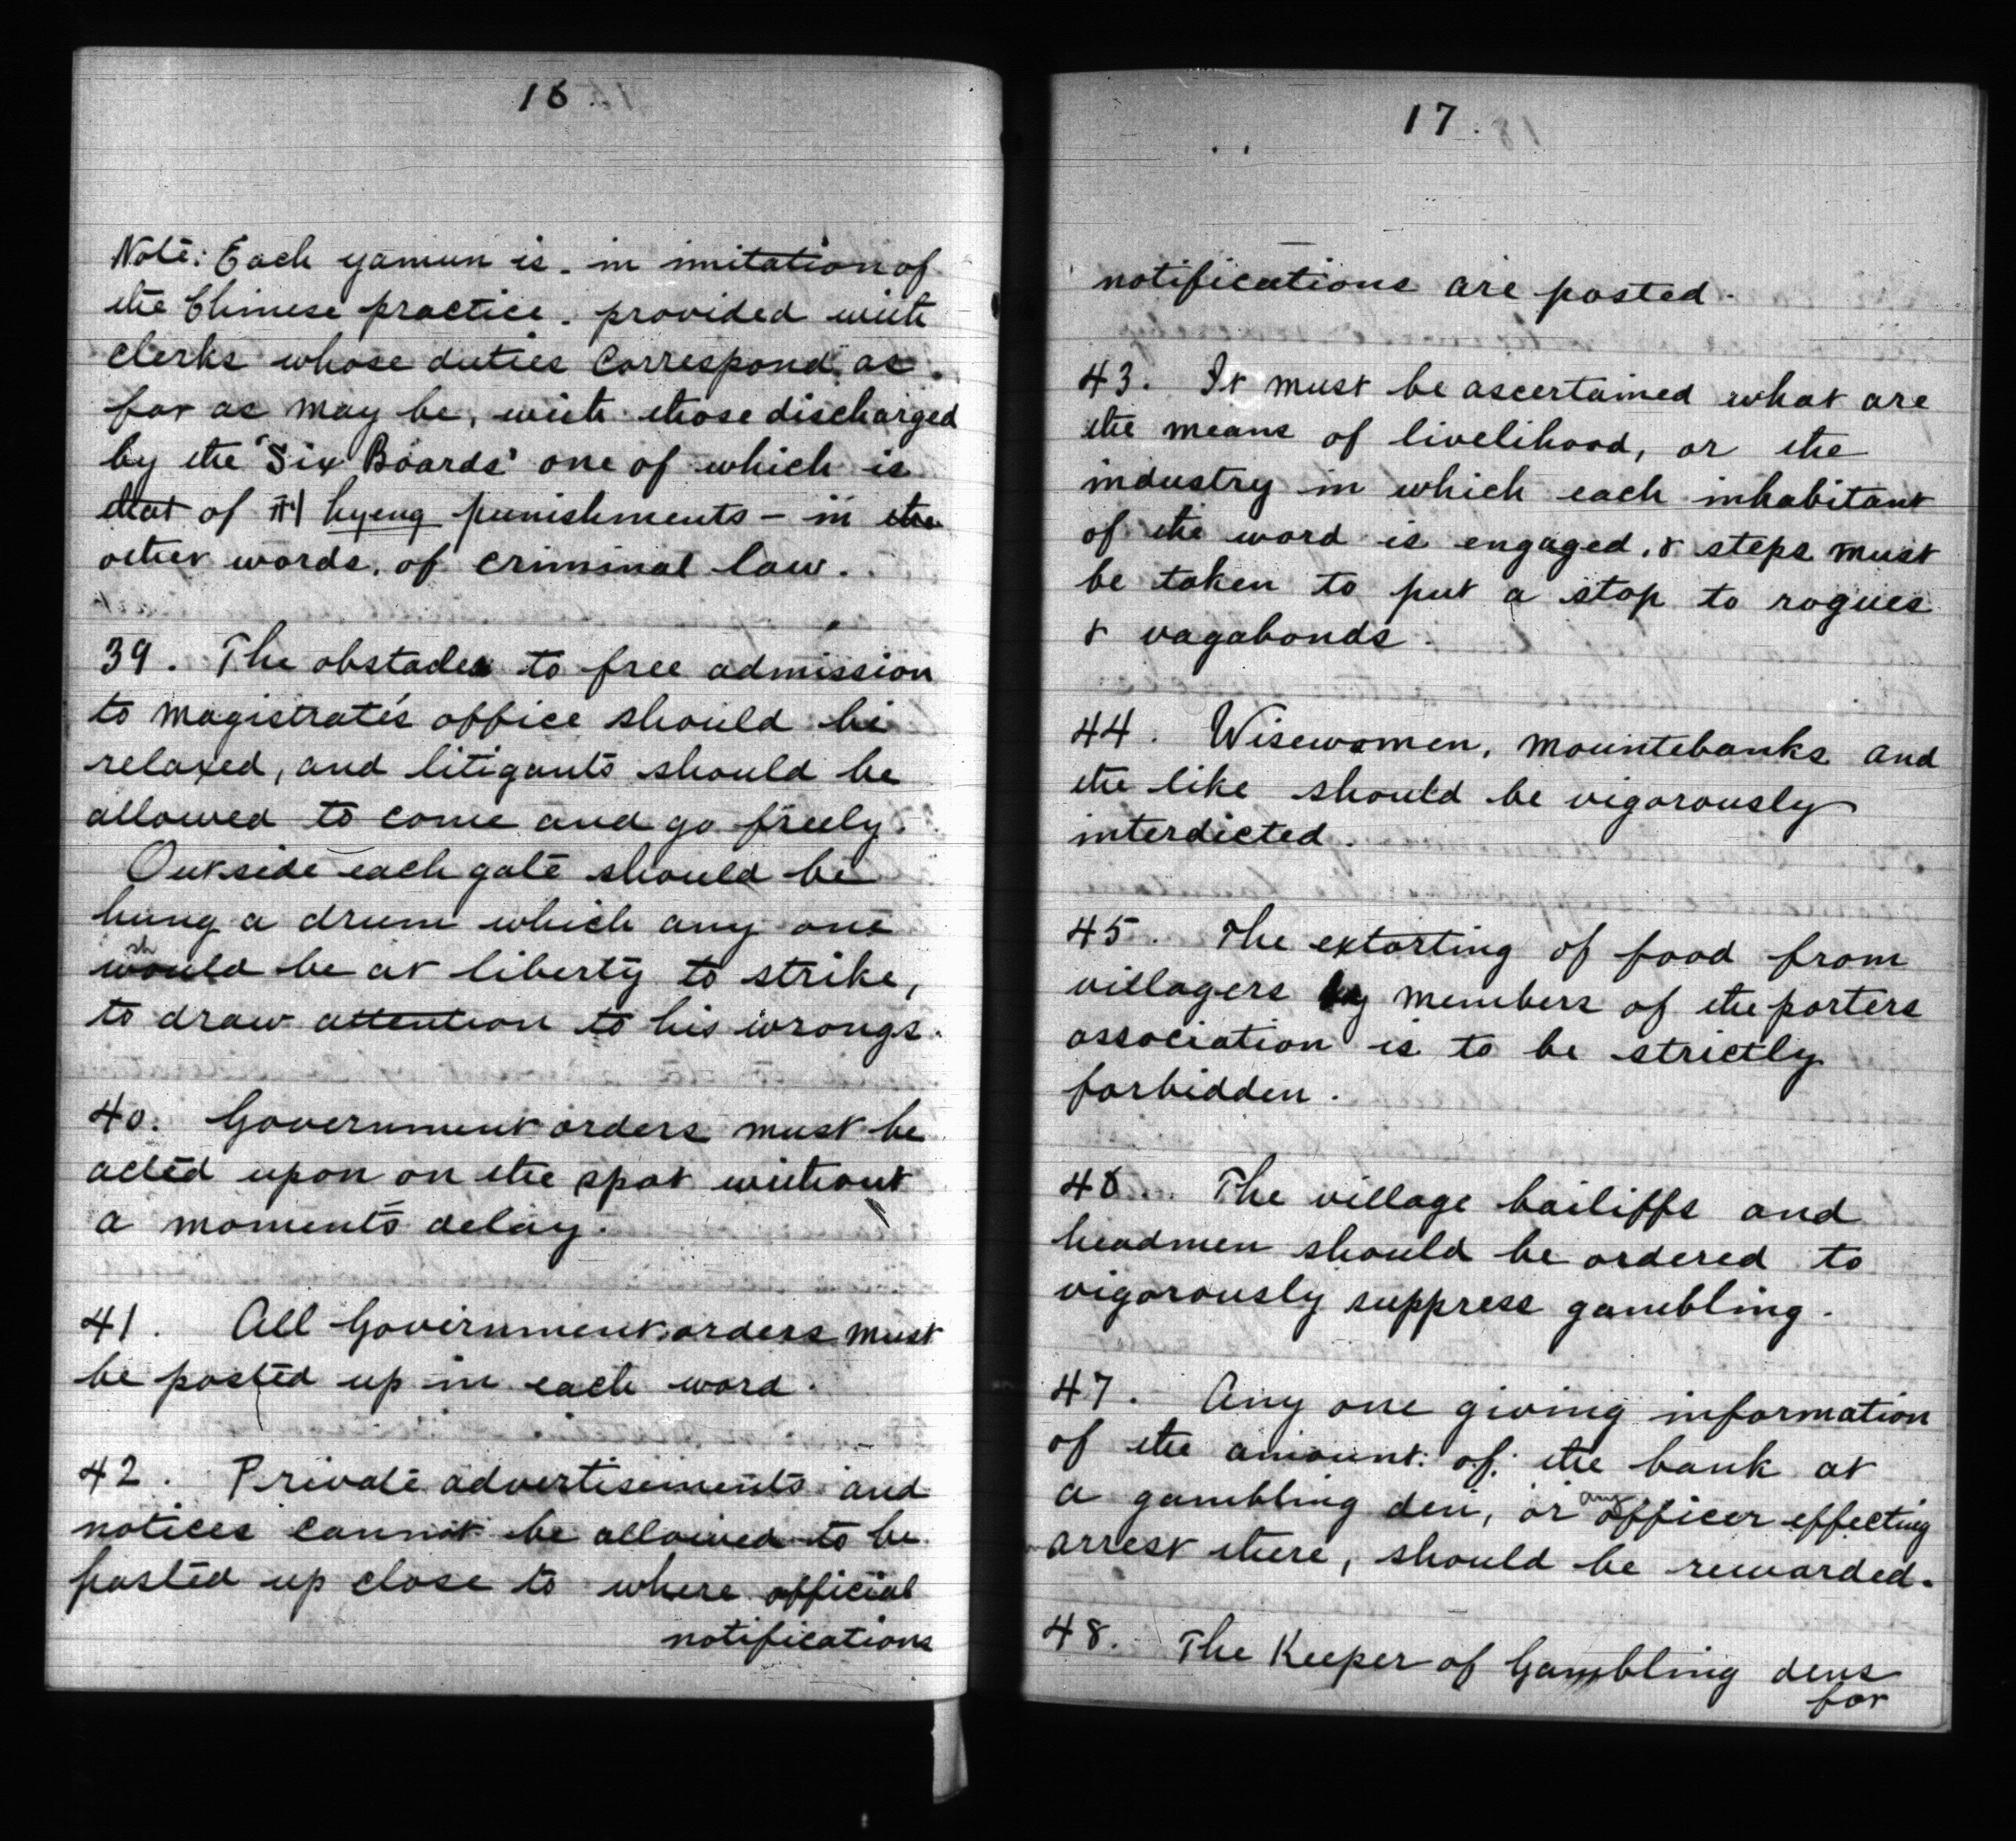 16.
Note: Each yamun is. in imitation of
the Chinese practice. provided with
clerks whose duties correspond, as
far as may be, with those discharged
by the 'Six Boards' one of which is
that of 刑 hyeng punishments - in the
other words, of criminal law.
39. The obstacles to free admission
to magistrate's office should be
relaxed, and litigants should be
allowed to come and go freely.
Outside each gate should be
hung a drum which any one
should be at liberty to strike,
to draw attention to his wrongs.
40. Government orders must be
acted upon on the spot without
a moment's delay.
41. All Government orders must
be posted up in each ward.
42. Private advertisements and
notices cannot be allowed to be
posted up close to where official
notifications
17.
notifications are posted.
43. It must be ascertained what are
the means of livelihood, or the
industry in which each inhabitant
of the word is engaged, & steps must
be taken to put a stop to rogues
& vagabonds.
44. Wisewomen, mountebanks and
the like should be vigorously
interdicted.
45. The extorting of food from
villagers by members of the porters
association is to be strictly
forbidden.
46. The village bailiffs and
headmen should be ordered to
vigorously suppress gambling.
47. Any one giving information
of the amount of the bank at
a gambling den, or any officer effecting
arrest there, should be rewarded.
48. The Keeper of Gambling dens
for